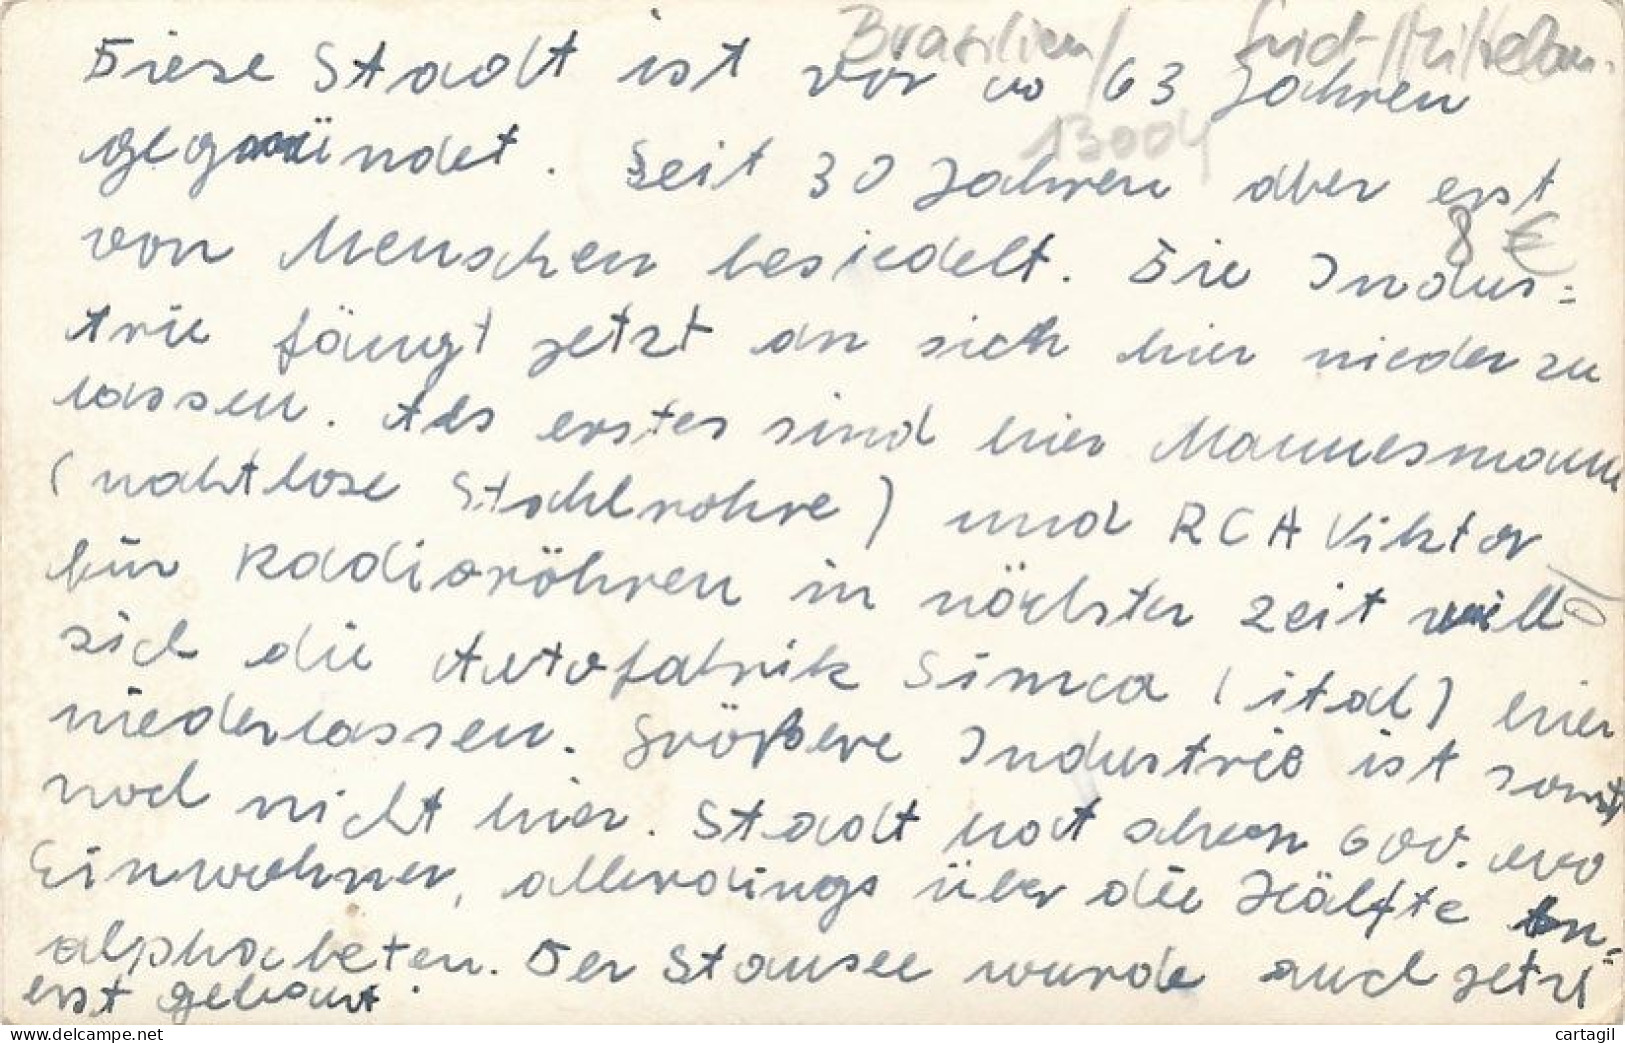 Brasilien/
13004
8 €
Diese Stadt ist vor ca 63 Jahren
gegründet. Seit 30 Jahren aber erst
von Menschen besiedelt. Die Indus=
trie fängt jetzt an sich hier nieder zu
lassen. Als erstes sind hier Mannesmann
(nahtlose Stahlrohre) und RCA Viktor
für Radioröhren in nächster Zeit will
sich die Autofabrik Simca (ital) hier
niederlassen. Größere Industrie ist sonst
noch nicht hier. Stadt hat schon 600.000
Einwohner, allerdings über die Hälfte An=
alphabeten. Der Stausee wurde auch jetzt
erst gebaut.
cartagil